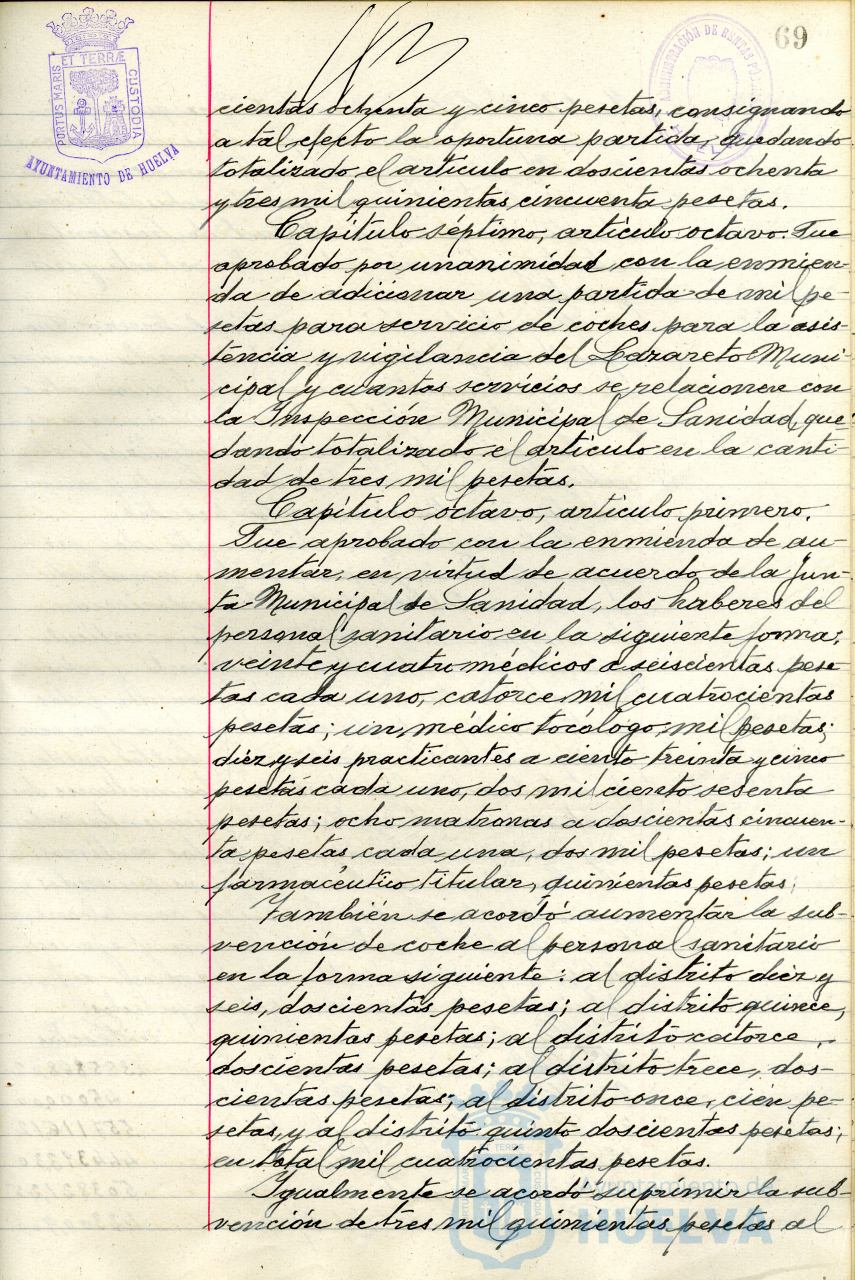 69
PORTUS MARIS ET TERRÆ CUSTODIA
AYUNTAMIENTO DE HUELVA
ADMINISTRACIÓN DE RENTAS
cientas ochenta y cinco pesetas, consignando
a tal efecto la oportuna partida, quedando
totalizado el artículo en doscientas ochenta
y tres mil quinientas cincuenta pesetas.
Capítulo séptimo, artículo octavo. Fue
aprobado por unanimidad con la enmien-
da de adicionar una partida de mil pe-
setas para servicio de coches para la asis-
tencia y vigilancia del Lazareto Muni-
cipal y cuantos servicios se relacionen con
la Inspección Municipal de Sanidad, que-
dando totalizado el artículo en la canti-
dad de tres mil pesetas.
Capítulo octavo, artículo primero.
Fue aprobado con la enmienda de au-
mentar, en virtud de acuerdo de la Jun-
ta Municipal de Sanidad, los haberes del
personal sanitario en la siguiente forma:
veinte y cuatro médicos a seiscientas pese-
tas cada uno, catorce mil cuatrocientas
pesetas; un médico tocólogo, mil pesetas;
diez y seis practicantes a ciento treinta y cinco
pesetas cada uno, dos mil ciento sesenta
pesetas; ocho matronas a doscientas cincuen-
ta pesetas cada una, dos mil pesetas; un
farmacéutico titular, quinientas pesetas;
También se acordó aumentar la sub-
vención de coche al personal sanitario
en la forma siguiente: al distrito diez y
seis, doscientas pesetas; al distrito quince,
quinientas pesetas; al distrito catorce,
doscientas pesetas; al distrito trece, dos-
cientas pesetas; al distrito once, cien pe-
setas, y al distrito quinto doscientas pesetas;
en total mil cuatrocientas pesetas.
Igualmente se acordó suprimir la sub-
vención de tres mil quinientas pesetas al
Ayuntamiento de
HUELVA